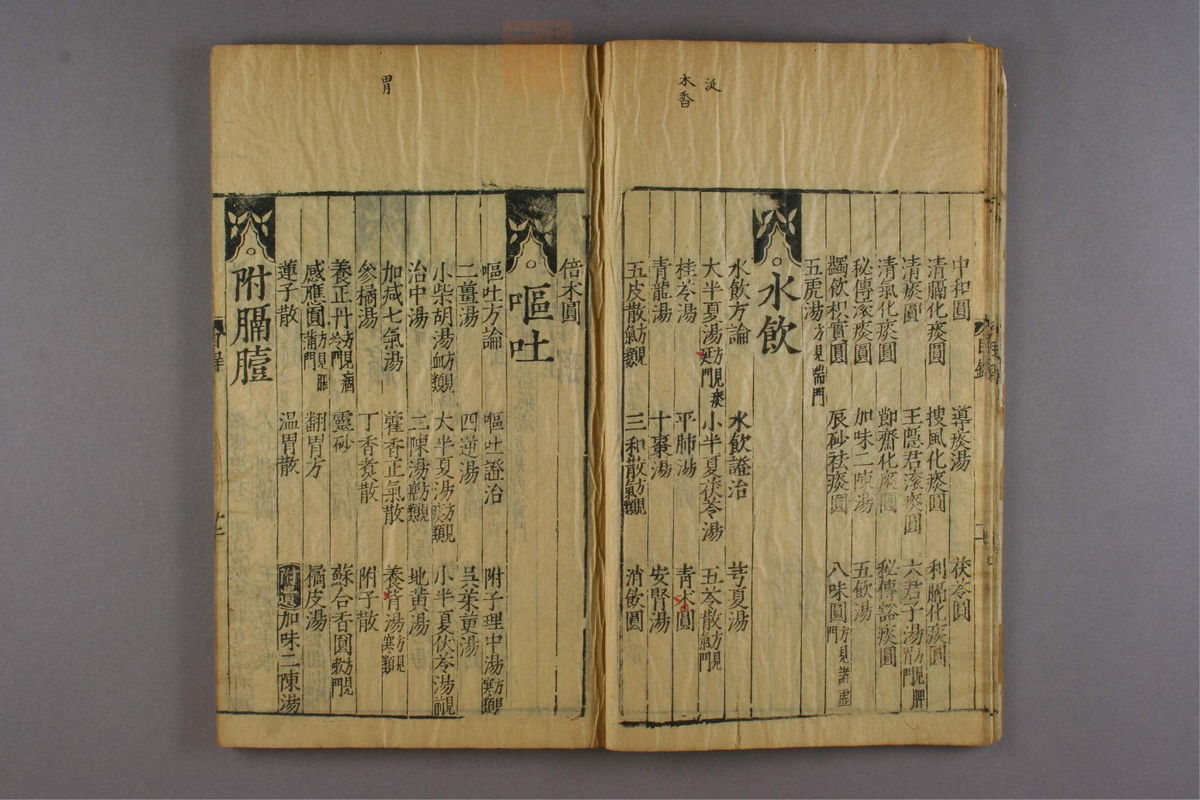 洰
木香
中和圓　導痰湯　茯苓圓
清膈化痰圓　捜風化痰圓　利膈化痰圓
清痰圓　王隱君滾痰圓　六君子湯方見脾胃門
清氣化痰圓　節齋化痰圓　秘傳豁痰圓
秘傳滾痰圓　加味二陳湯　五飲湯
蠲飲枳實圓　辰砂祛痰圓　八味圓方見諸虛門
五虎湯方見喘門
水飲
水飲方論　水飲證治　芎夏湯
大半夏湯方見痰門　小半夏茯苓湯　五苓散方見門
桂苓湯　平肺湯　青木圓
青龍湯　十棗湯　安腎湯
五皮散方見氣類　三和散方見氣類　消飲圓
倍朮圓
嘔吐
嘔吐方論　嘔吐證治　附子理中湯方見寒類
二薑湯　四逆湯　吳茱萸湯
小柴胡湯方見血類　大半夏湯方見痰類　小半夏茯苓湯見前
治中湯　二陳湯方見類　地黃湯
加減七氣湯　藿香正氣散　養胃湯方見寒類
參橘湯　丁香煑散　附子散
養正丹方見痼冷門　靈砂　蘇合香圓方見門
感應圓方見門　翻胃方　橘皮湯
蓮子散　温胃散　附遺加味二陳湯
附膈臆
胃
目録